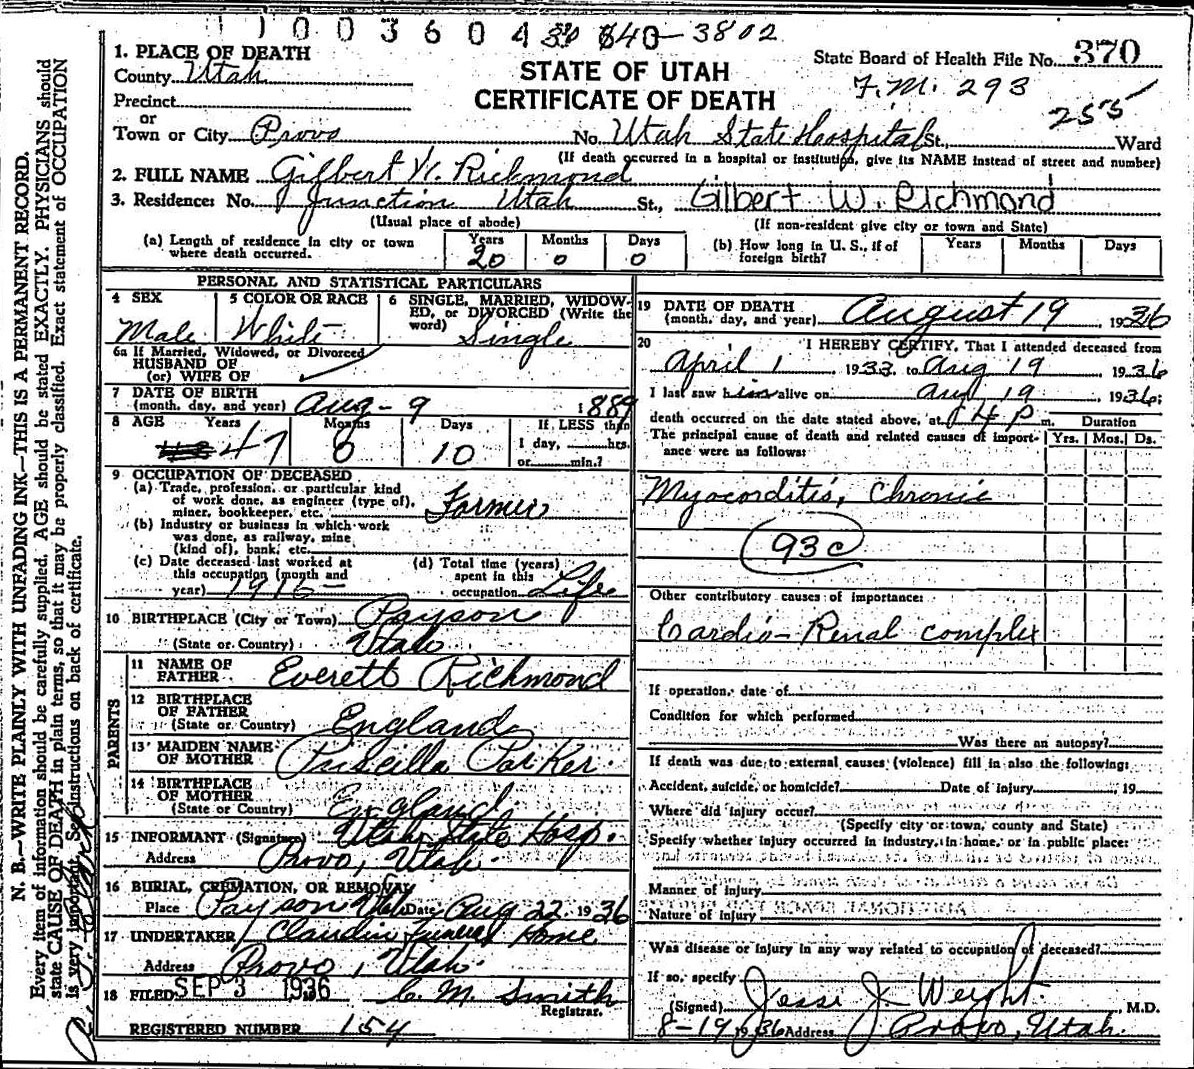 1003604 30 640-3802
1. PLACE OF DEATH
County Utah
Precinct
or
Town or City Provo No. Utah State Hospital St., Ward
STATE OF UTAH
CERTIFICATE OF DEATH
State Board of Health File No. 370
F.M. 293
255
(If death occurred in a hospital or institution, give its NAME instead of street and number)
2. FULL NAME Gilbert W. Richmond
3. Residence: No. Junction Utah St., Gilbert W. Richmond
(Usual place of abode) (If non-resident give city or town and State)
(a) Length of residence in city or town where death occurred. Years 20 Months 0 Days 0
(b) How long in U. S., if of foreign birth? Years Months Days
PERSONAL AND STATISTICAL PARTICULARS
4 SEX Male
5 COLOR OR RACE White
6 SINGLE, MARRIED, WIDOWED, or DIVORCED (Write the word) Single
6a If Married, Widowed, or Divorced
HUSBAND OF
(or) WIFE OF
7 DATE OF BIRTH
(month, day, and year) Aug - 9 1889
8 AGE Years 47 Months 0 Days 10 If LESS than
1 day, hrs.
or min.?
9 OCCUPATION OF DECEASED
(a) Trade, profession, or particular kind
of work done, as engineer (type of),
miner, bookkeeper, etc. Farmer
(b) Industry or business in which work
was done, as railway, mine
(kind of), bank, etc.
(c) Date deceased last worked at
this occupation (month and
year) 1916
(d) Total time (years)
spent in this
occupation Life
10 BIRTHPLACE (City or Town) Payson
(State or Country) Utah
PARENTS
11 NAME OF
FATHER Everett Richmond
12 BIRTHPLACE
OF FATHER
(State or Country) England
13 MAIDEN NAME
OF MOTHER Priscilla Parker.
14 BIRTHPLACE
OF MOTHER
(State or Country) England
15 INFORMANT (Signature) Utah State Hosp.
Address Provo, Utah.
16 BURIAL, CREMATION, OR REMOVAL
Place Payson Utah Date Aug 22 1936
17 UNDERTAKER Claudin Funeral Home
Address Provo, Utah.
18 FILED SEP 3 1936 C. M. Smith
Registrar.
REGISTERED NUMBER 154
19 DATE OF DEATH
(month, day, and year) August 19, 1936
20 I HEREBY CERTIFY, That I attended deceased from
April 1, 1933 to Aug 19 1936
I last saw him alive on Aug 19, 1936;
death occurred on the date stated above, at 4 P m. Duration
The principal cause of death and related causes of importance were as follows: Yrs. Mos. Ds.
Myocorditis, Chronic
93c
Other contributory causes of importance:
Cardio-Renal complex
If operation, date of
Condition for which performed
Was there an autopsy?
If death was due to external causes (violence) fill in also the following:
Accident, suicide, or homicide? Date of injury , 19
Where did injury occur?
(Specify city or town, county and State)
Specify whether injury occurred in industry, in home, or in public place:
Manner of injury
Nature of injury
Was disease or injury in any way related to occupation of deceased?
If so, specify
(Signed) Jesse J. Weight. M.D.
8-19 1936 Address Provo, Utah.
N. B.—WRITE PLAINLY WITH UNFADING INK—THIS IS A PERMANENT RECORD.
Every item of information should be carefully supplied. AGE should be stated EXACTLY. PHYSICIANS should
state CAUSE OF DEATH in plain terms, so that it may be properly classified. Exact statement of OCCUPATION
is very important. See instructions on back of certificate.